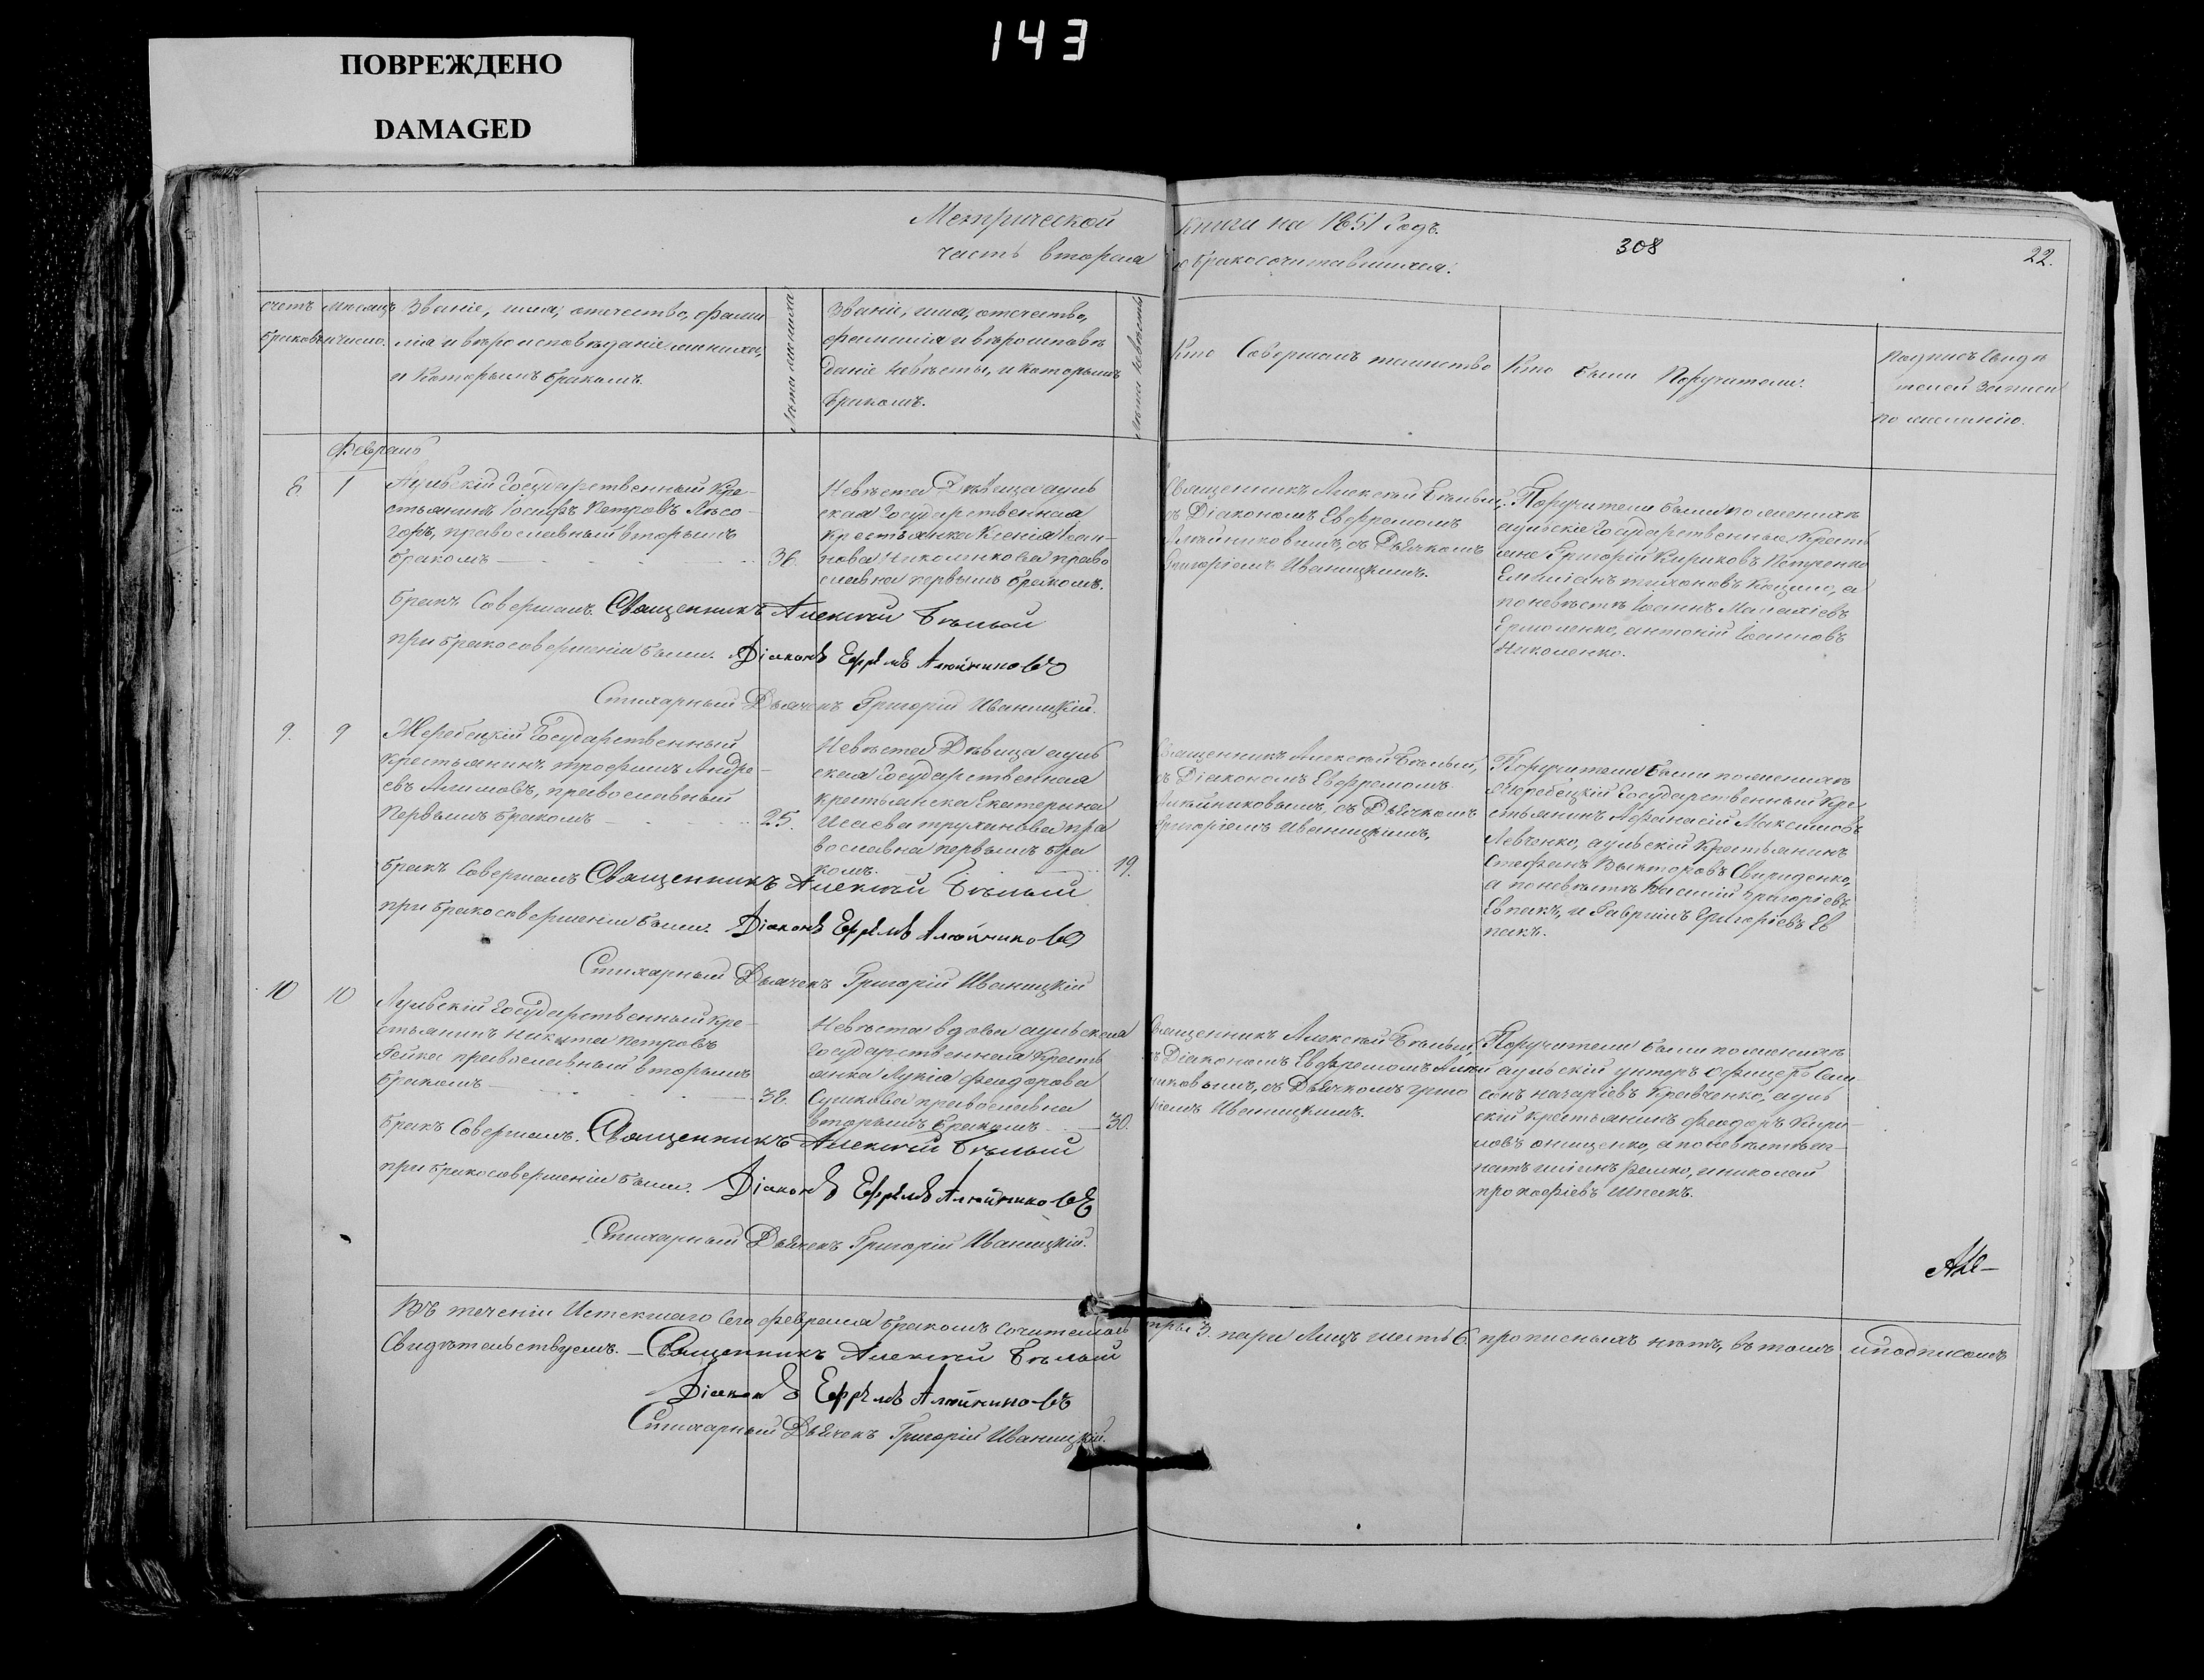 143
ПОВРЕЖДЕНО
DAMAGED
Метрической книги на 1851 Годъ.
часть вторая о бракосочитавшихся.
308
22.
счетъ браковъ
мѣсяцъ и число.
Званіе, имя, отечество, фами-
лія и вѣроисповѣданіе жениха,
и Которымъ бракомъ.
Лѣта жениха
Званіе, имя, отечество,
фамилія и вѣроисповѣ
даніе невѣсты, и которымъ
бракомъ.
Лѣта невѣсты
Кто Совершалъ таинство
Кто были Поручители.
Февраль
8
1
Аульскій Государственный Кре-
стьянинъ Іосифъ Петровъ Лѣсо-
горъ, православный вторымъ
бракомъ
36.
Невѣста Дѣвица ауль
ская Государственная
крестьянка Ксенія Іоан-
нова Николенкова право
славна первымъ бракомъ.
Священникъ Алексѣй Бѣлый,
съ Діакономъ Ефремомъ
Григоріемъ Иваницкимъ.
Поручители были по женихѣ
аульскіе Государственные Крестъ
яне Григорій Кириковъ Петренко
Емиліанъ Тихоновъ а
по невѣстѣ Іоаннъ Малахіевъ
Ермоленко, антоній Іоанновъ
Николенко.
бракъ Совершалъ. Священникъ Алексѣй Бѣлый
при бракосовершеніи были. Діаконъ Ефремъ Алюйниковъ
Стихарный Дьячекъ Григорій Иваницкій.
9.
9
Жеребецкій Государственный
крестьянинъ трофимъ Андре-
евъ Алимовъ, православный
Первымъ бракомъ
25.
Невѣста Дѣвица ауль
ская Государственная
крестьянска Екатерина
Исаева труханова пра
вославна первымъ бра
комъ.
19.
Священникъ Алексѣй Бѣлый,
съ Діакономъ Ефремомъ
съ Дьячкомъ
Григоріемъ Иваницкимъ,
Поручители были по женихѣ
жеребецкій Государственный Кре
стьянинъ Афанасій Максимовъ
Левченко, аульскій Крестьянинъ
Стефанъ Викторовъ Свириденко,
а по невѣстѣ Василій Григоріевъ
Евпакъ, и Гавріилъ Григоріевъ Ев
пакъ.
бракъ Совершалъ Священникъ Алексѣй Бѣлый
при бракосовершеніи были. Діаконъ Ефремъ Алюйниковъ
Стихарный Дьячекъ Григорій Иваницкій
10
10
Аульскій Государственный кре-
стьянинъ никита Петровъ
Гейка православный вторымъ
бракомъ
38.
Невѣста вдова аульская
Государственная Кресть
янка Лукія феодорова
Сушкова православна
вторымъ бракомъ
30.
Священникъ Алексѣй Бѣлый
съ Діакономъ Ефремомъ Алюй
никовымъ, съ Дьячкомъ григо
ріемъ Иваницкимъ.
Поручители были по женихѣ
аульскій унтеръ Офицеръ Сам-
сонъ назаріевъ Кравченко, ауль
скій крестьянинъ феодоръ Кири-
ловъ онищенко, а по невѣстѣ иг-
натъ иліинъ ремко, и николай
прокофіевъ Шпакъ.
бракъ Совершалъ. Священникъ Алексѣй Бѣлый
при бракосовершеніи были. Діаконъ Ефремъ Алюйниковъ
Стихарный Дьячекъ Григорій Иваницкій.
Въ теченіи Истекшаго Сего февраля бракомъ Сочиталось три 3. пары Лицъ шесть 6. прописныхъ нѣтъ, въ томъ и подписомъ
Свидѣтельствуемъ. — Священникъ Алексѣй Бѣлый
Діаконъ Ефремъ Алюйниковъ
Стихарный Дьячекъ Григорій Иваницкій.